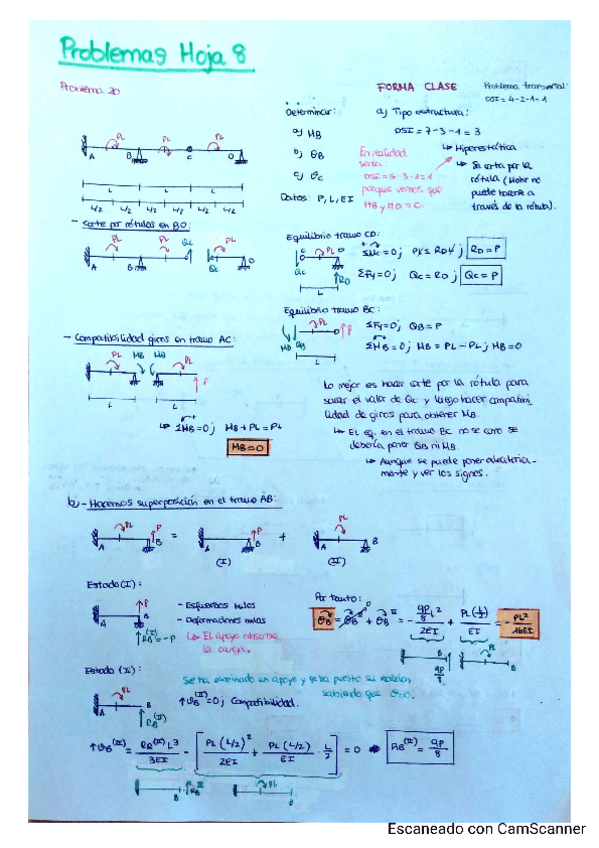 Problemas Hoja 8
Problema 20
FORMA CLASE
Problema transversal:
OSI = 4-2-1-1
Determinar:
a) MB
b) θB
c) δc
Datos: P, L, EI
a) Tipo estructura:
OSI = 7-3-1 = 3
↳ Hiperestática
↳ Se corta por la
rótula (Mohr no
puede hacerse a
través de la rótula).
En realidad
sería:
porque vemos que
MB y MD = 0.
PL PL PL
A B C D
L L L
L/2 L/2 L/2 L/2 L/2 L/2
- Corte por rótulas en BD:
PL PL Qc PL
A B Qc D
Equilibrio tramo CD:
ΣMc = 0; PL = RD·L; RD = P
ΣFy = 0; Qc = RD; Qc = P
Equilibrio tramo BC:
ΣFy = 0; QB = P
ΣMB = 0; MB = PL - PL; MB = 0
- Compatibilidad giros en tramo AC:
PL MB MB PL
L L
↳ ΣMB = 0; MB + PL = PL
MB = 0
Lo mejor es hacer corte por la rótula para
sacar el valor de Qc y luego hacer compatibi-
lidad de giros para obtener MB.
↳ El eq. en el tramo BC no se como se
debería poner QB ni MB.
↳ Aunque se puede poner aleatoria-
mente y ver los signos.
b) - Hacemos superposición en el tramo AB:
PL P = P + PL
A B A B A B
(I) (II)
Estado (I):
P
A B
RB(I) = -P
- Esfuerzos nulos
- Deformaciones nulas
↳ El apoyo absorbe
la carga.
Por tanto:
θB = θB I + θB II = - 9P/8 L²/2EI + PL(L/2)/EI = - PL²/16EI
Estado (II):
Se ha eliminado un apoyo y se ha puesto su reacción
sabiendo que δ=0.
PL
A B
RB(II)
↑δB(II) = 0; Compatibilidad.
↑δB(II) = RB(II) L³/3EI - [PL(L/2)²/2EI + PL(L/2)/EI · L/2] = 0 ⇒ RB(II) = 9P/8
B RB II PL B
Escaneado con CamScanner